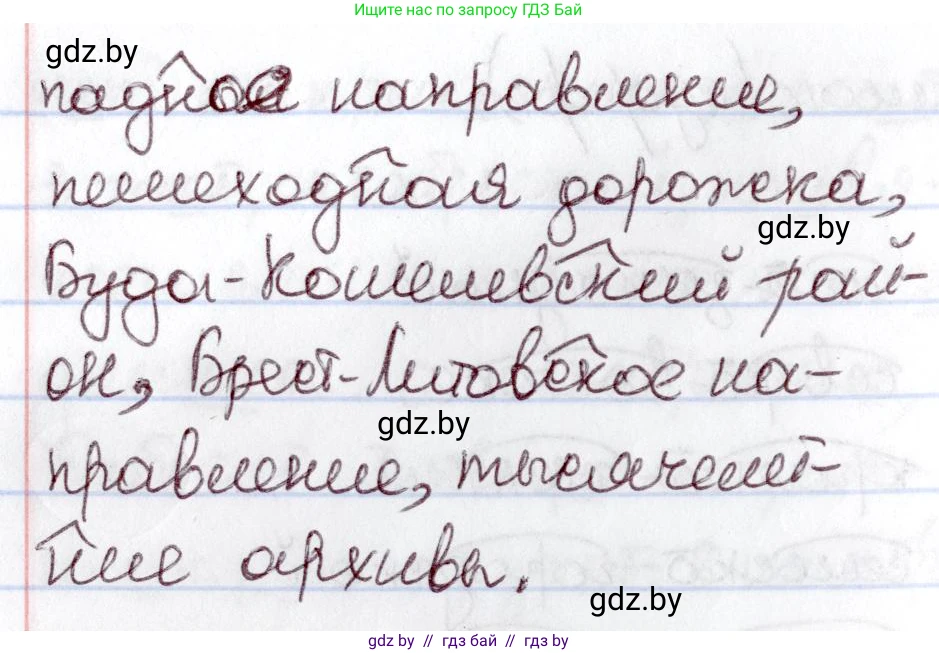 Ищите нас по запросу ГДЗ Бай
gdz.by
падное направление,
пешеходная дорожка,
gdz.by
Буда-Кошелевский рай-
он, Брест-Литовское на-
gdz.by
правление, тысячелет-
ние архивы.
gdz.by
gdz by // гдз бай // гдз by